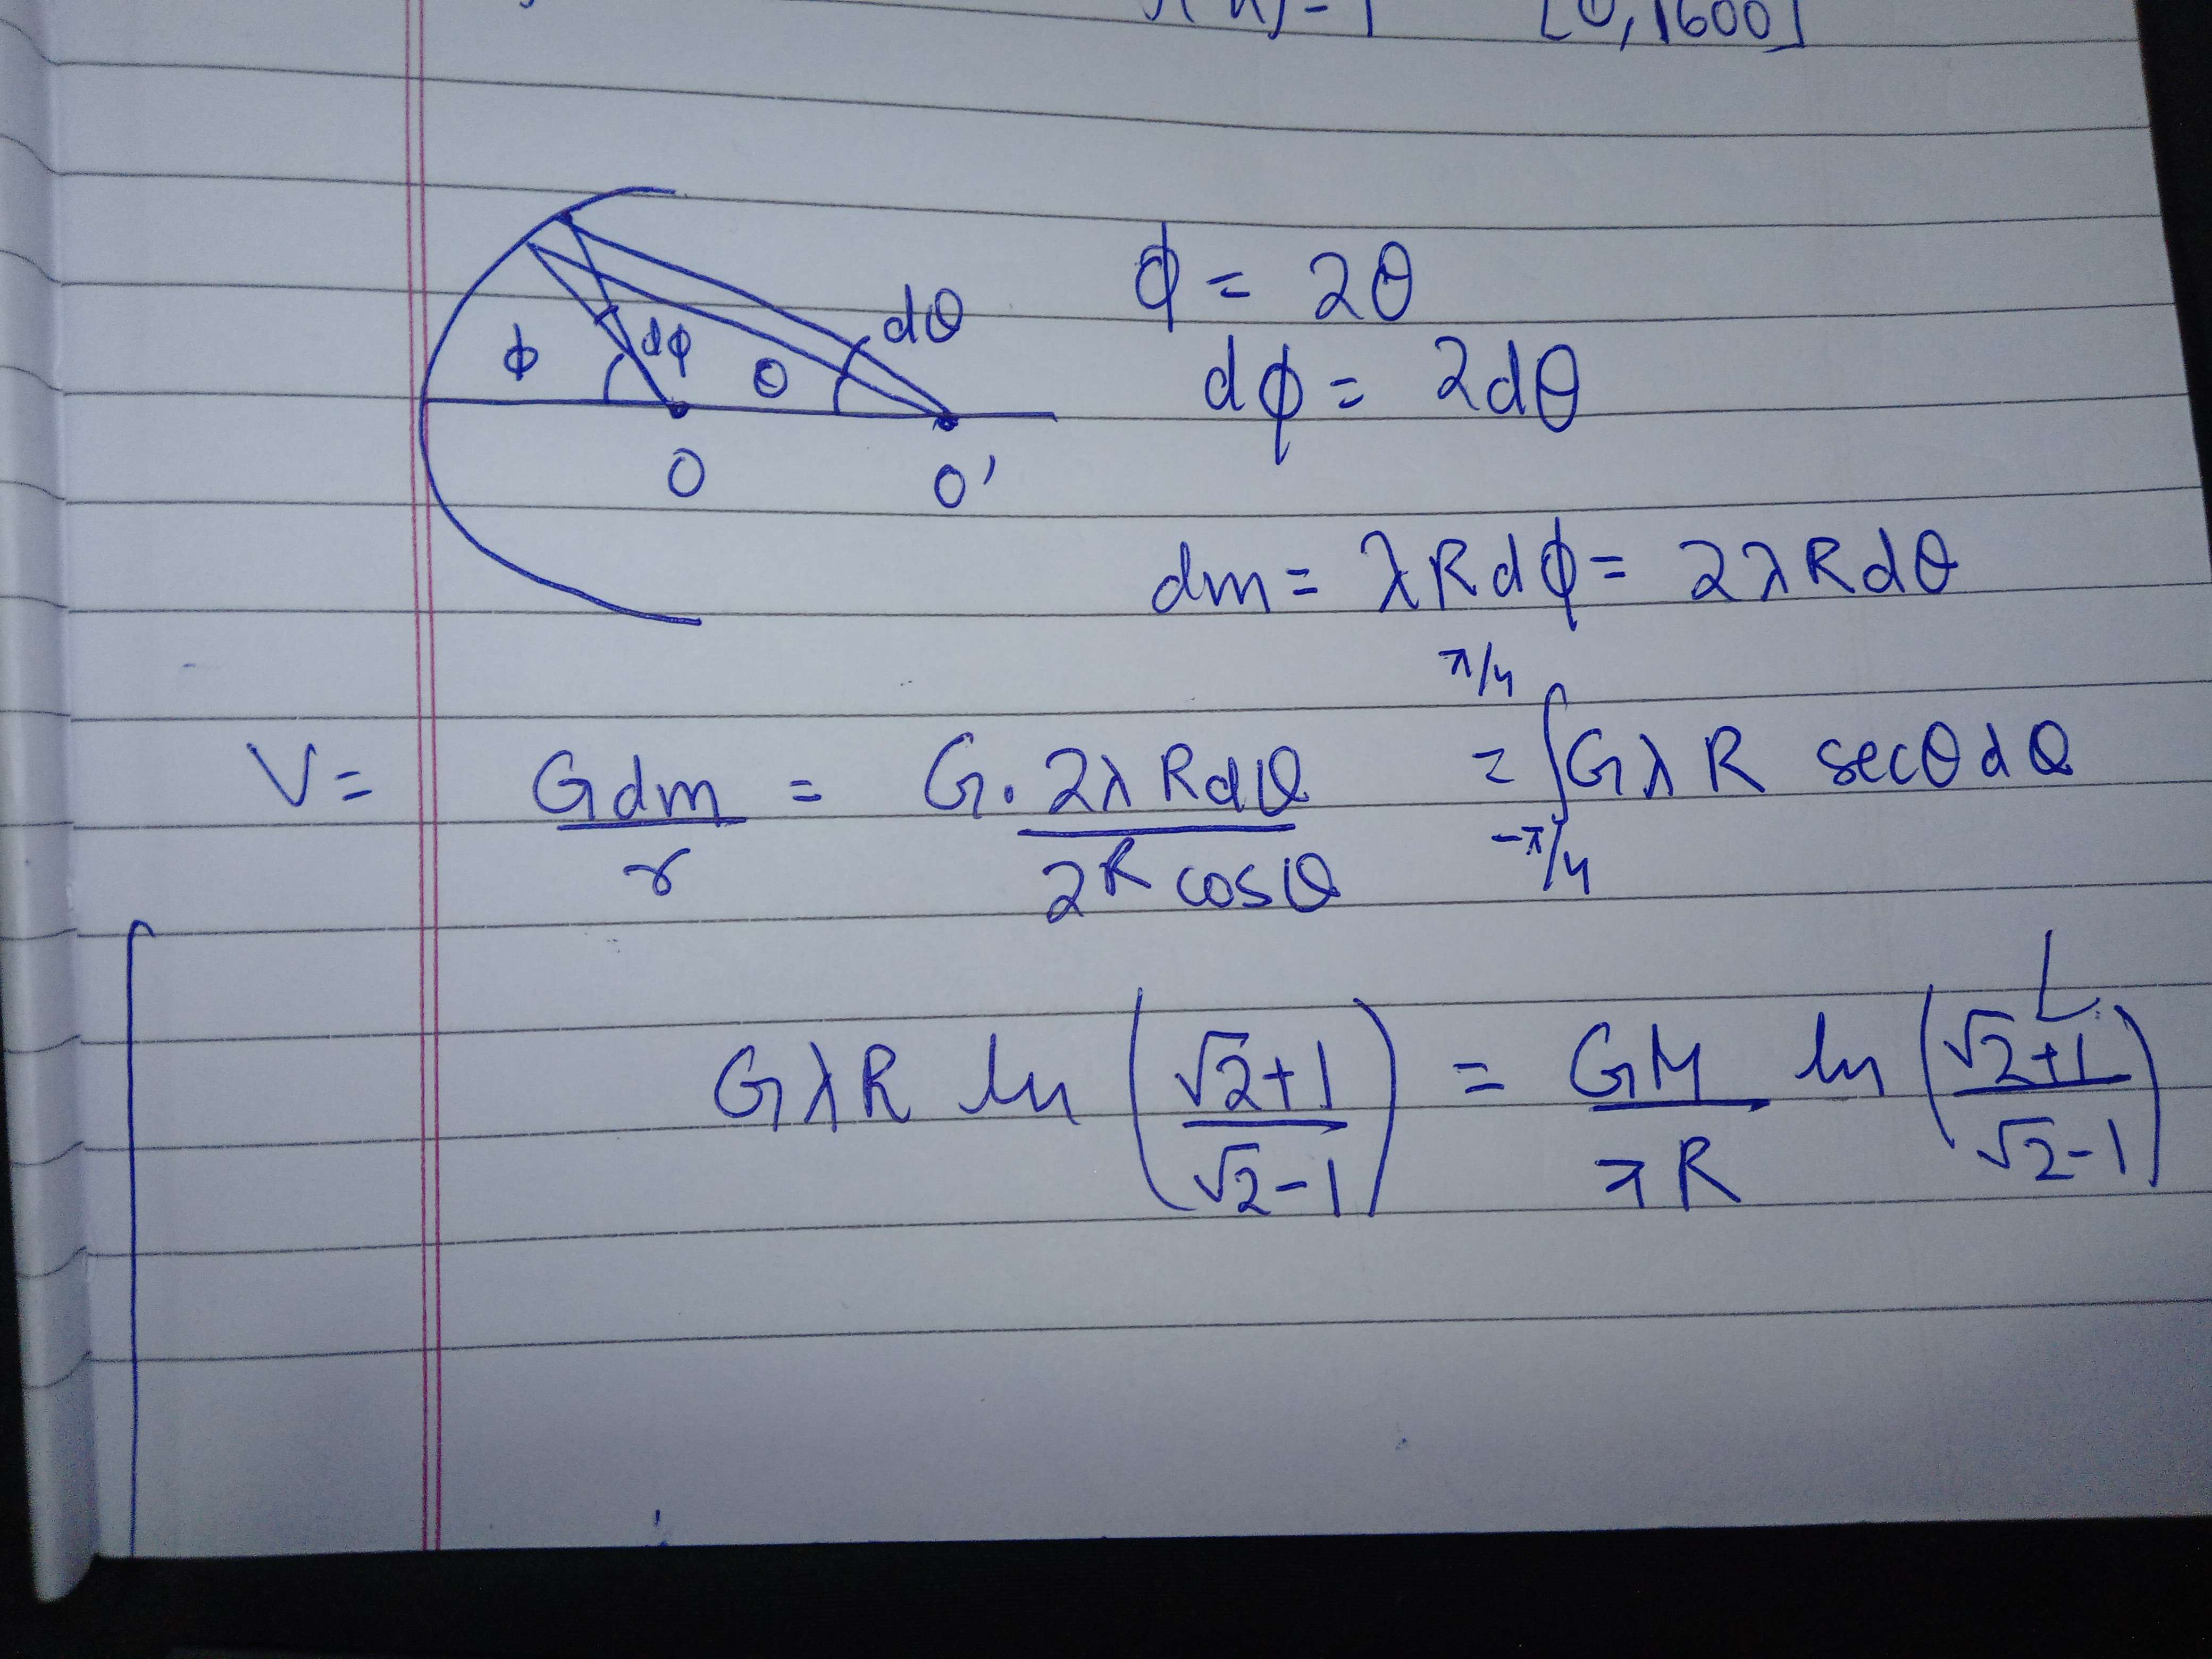 [0, 1600]
φ = 2θ
dθ
φ dφ θ
dφ = 2dθ
O O'
dm = λRdφ = 2λRdθ
V = Gdm/r = G.2λRdθ/2Rcosθ = ∫_{-π/4}^{π/4} GλR secθdθ
GλR ln((√2+1)/(√2-1)) = GM/πR ln((√2+1)/(√2-1))